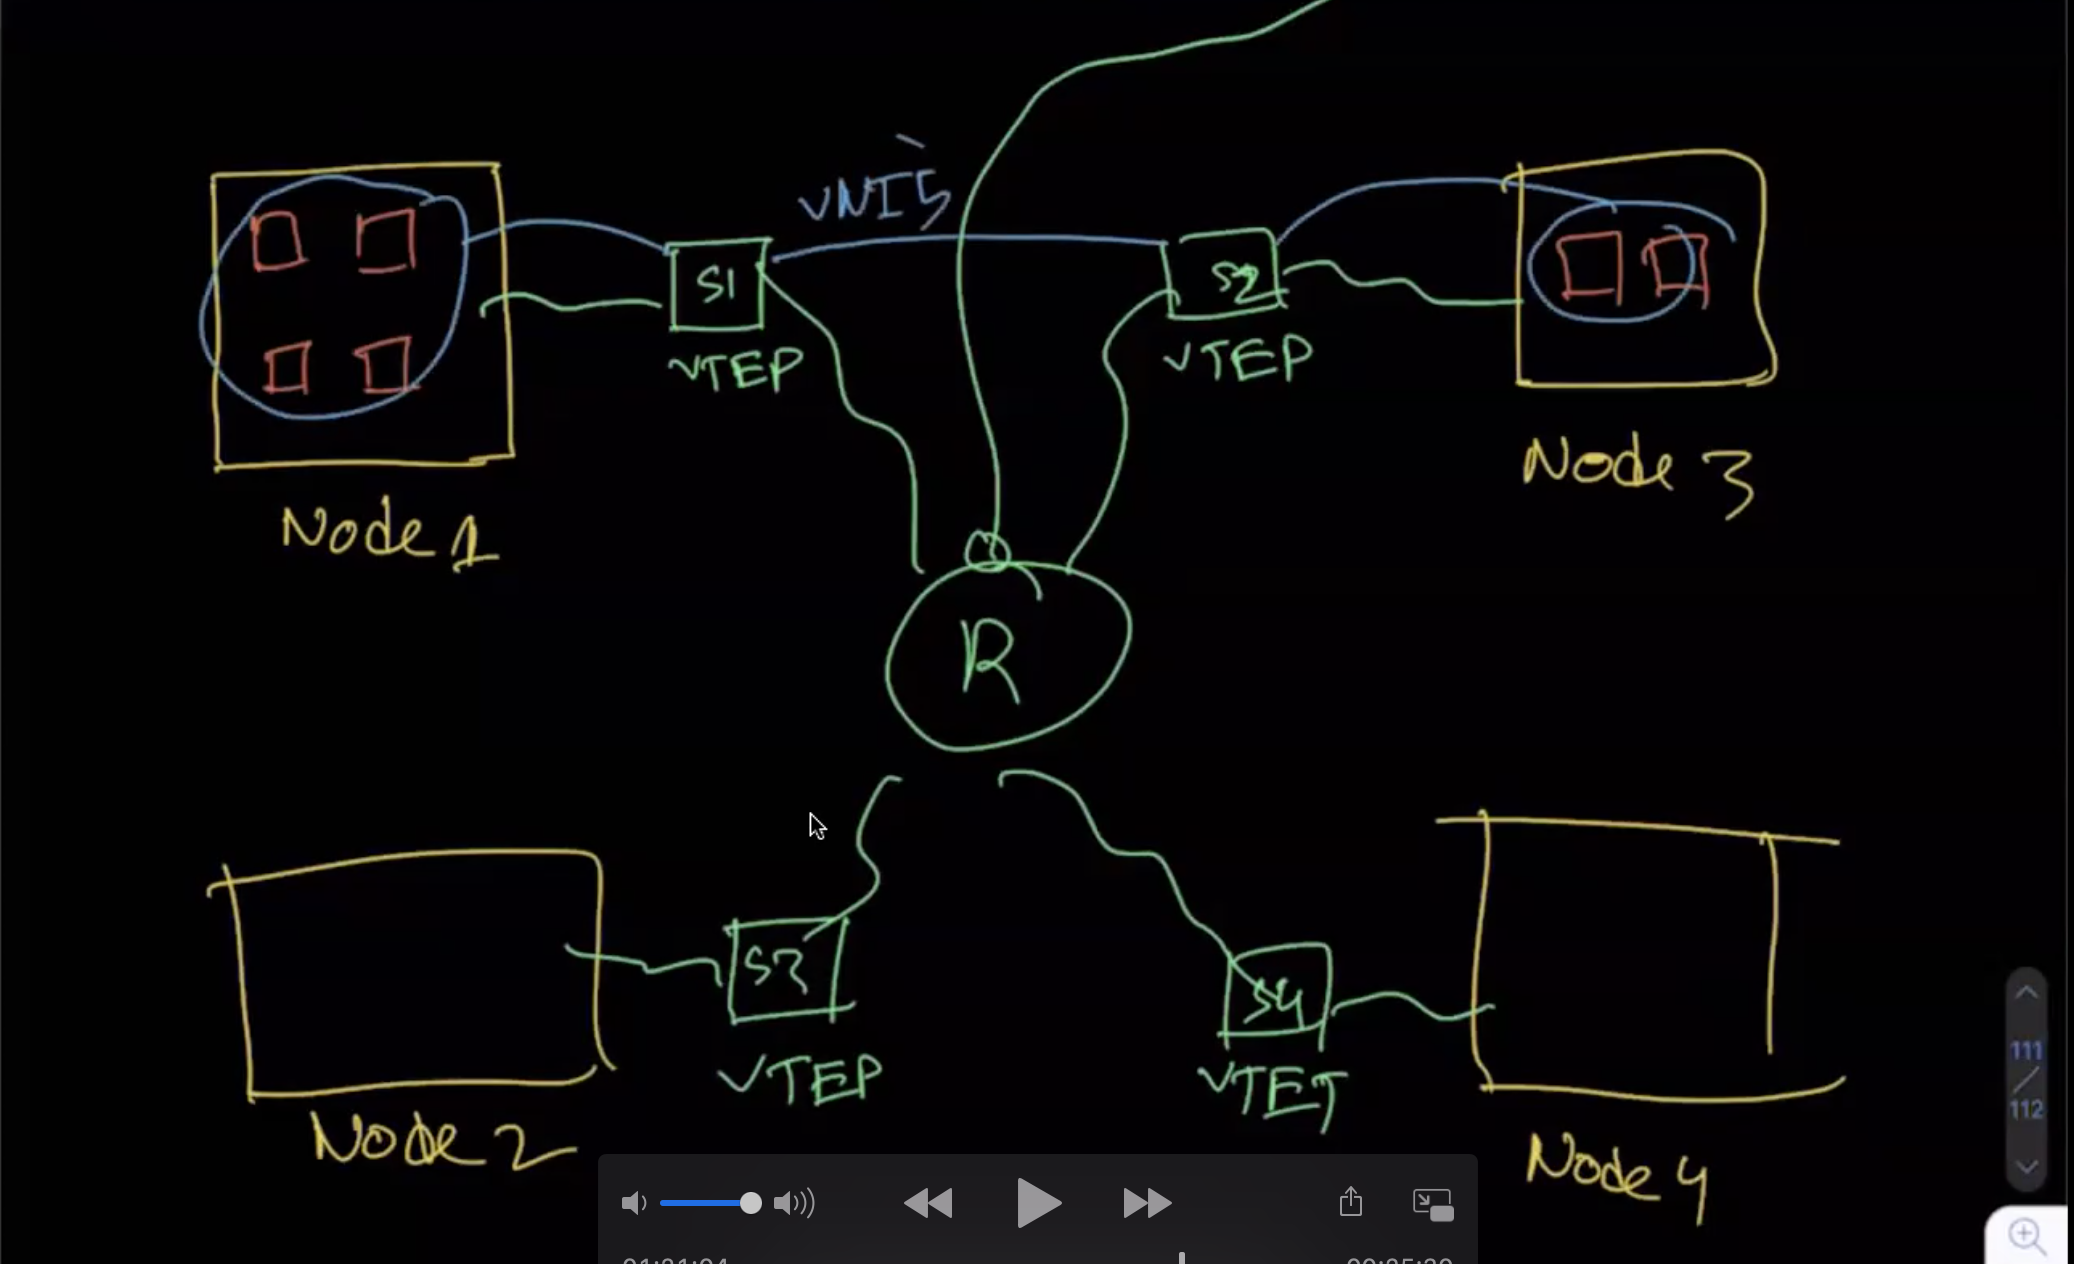 VNI 5
S1
S2
VTEP
VTEP
Node 1
Node 3
R
S3
S4
VTEP
VTET
Node 2
Node 4
111
/
112